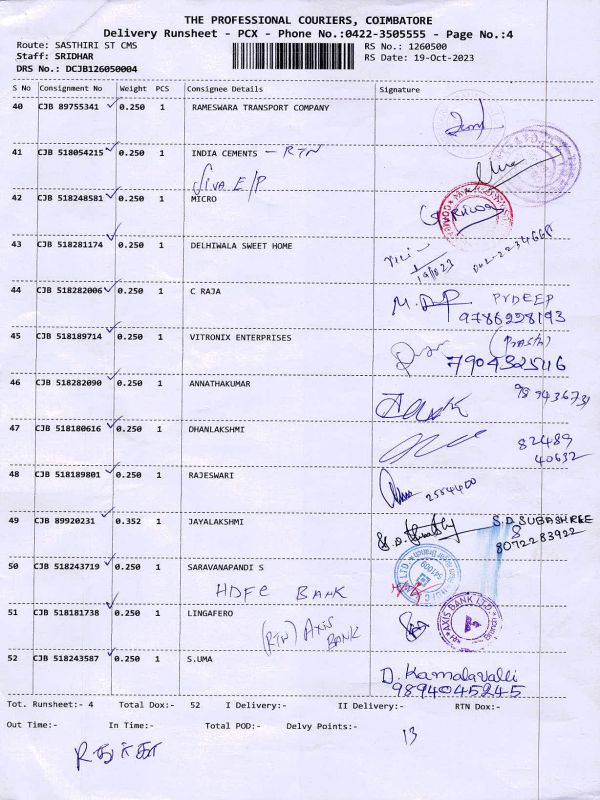 THE PROFESSIONAL COURIERS, COIMBATORE
Delivery Runsheet - PCX - Phone No.:0422-3505555 - Page No.:4
Route: SASTHIRI ST CMS
RS No.: 1260500
Staff: SRIDHAR
RS Date: 19-Oct-2023
DRS No.: DCJB126050004
S No Consignment No Weight PCS Consignee Details Signature
40 CJB 89755341 0.250 1 RAMESWARA TRANSPORT COMPANY
41 CJB 518054215 0.250 1 INDIA CEMENTS - RTN
Siva E/P
42 CJB 518248581 0.250 1 MICRO
43 CJB 518281174 0.250 1 DELHIWALA SWEET HOME
19/10/23
44 CJB 518282006 0.250 1 C RAJA
PRDEEP
9786228193
45 CJB 518189714 0.250 1 VITRONIX ENTERPRISES
7904325116
46 CJB 518282090 0.250 1 ANNATHAKUMAR
47 CJB 518180616 0.250 1 DHANLAKSHMI
82489
40632
48 CJB 518189801 0.250 1 RAJESWARI
2554400
49 CJB 89920231 0.352 1 JAYALAKSHMI
S.D SUBASHREE
8072283922
50 CJB 518243719 0.250 1 SARAVANAPANDI S
HDFC BANK
51 CJB 518181738 0.250 1 LINGAFERO
(RTN) AXIS BANK
AXIS BANK LTD.
52 CJB 518243587 0.250 1 S.UMA
D. Kamalavalli
9894045245
Tot. Runsheet:- 4 Total Dox:- 52 I Delivery:- II Delivery:- RTN Dox:-
Out Time:- In Time:- Total POD:- Delvy Points:-
13